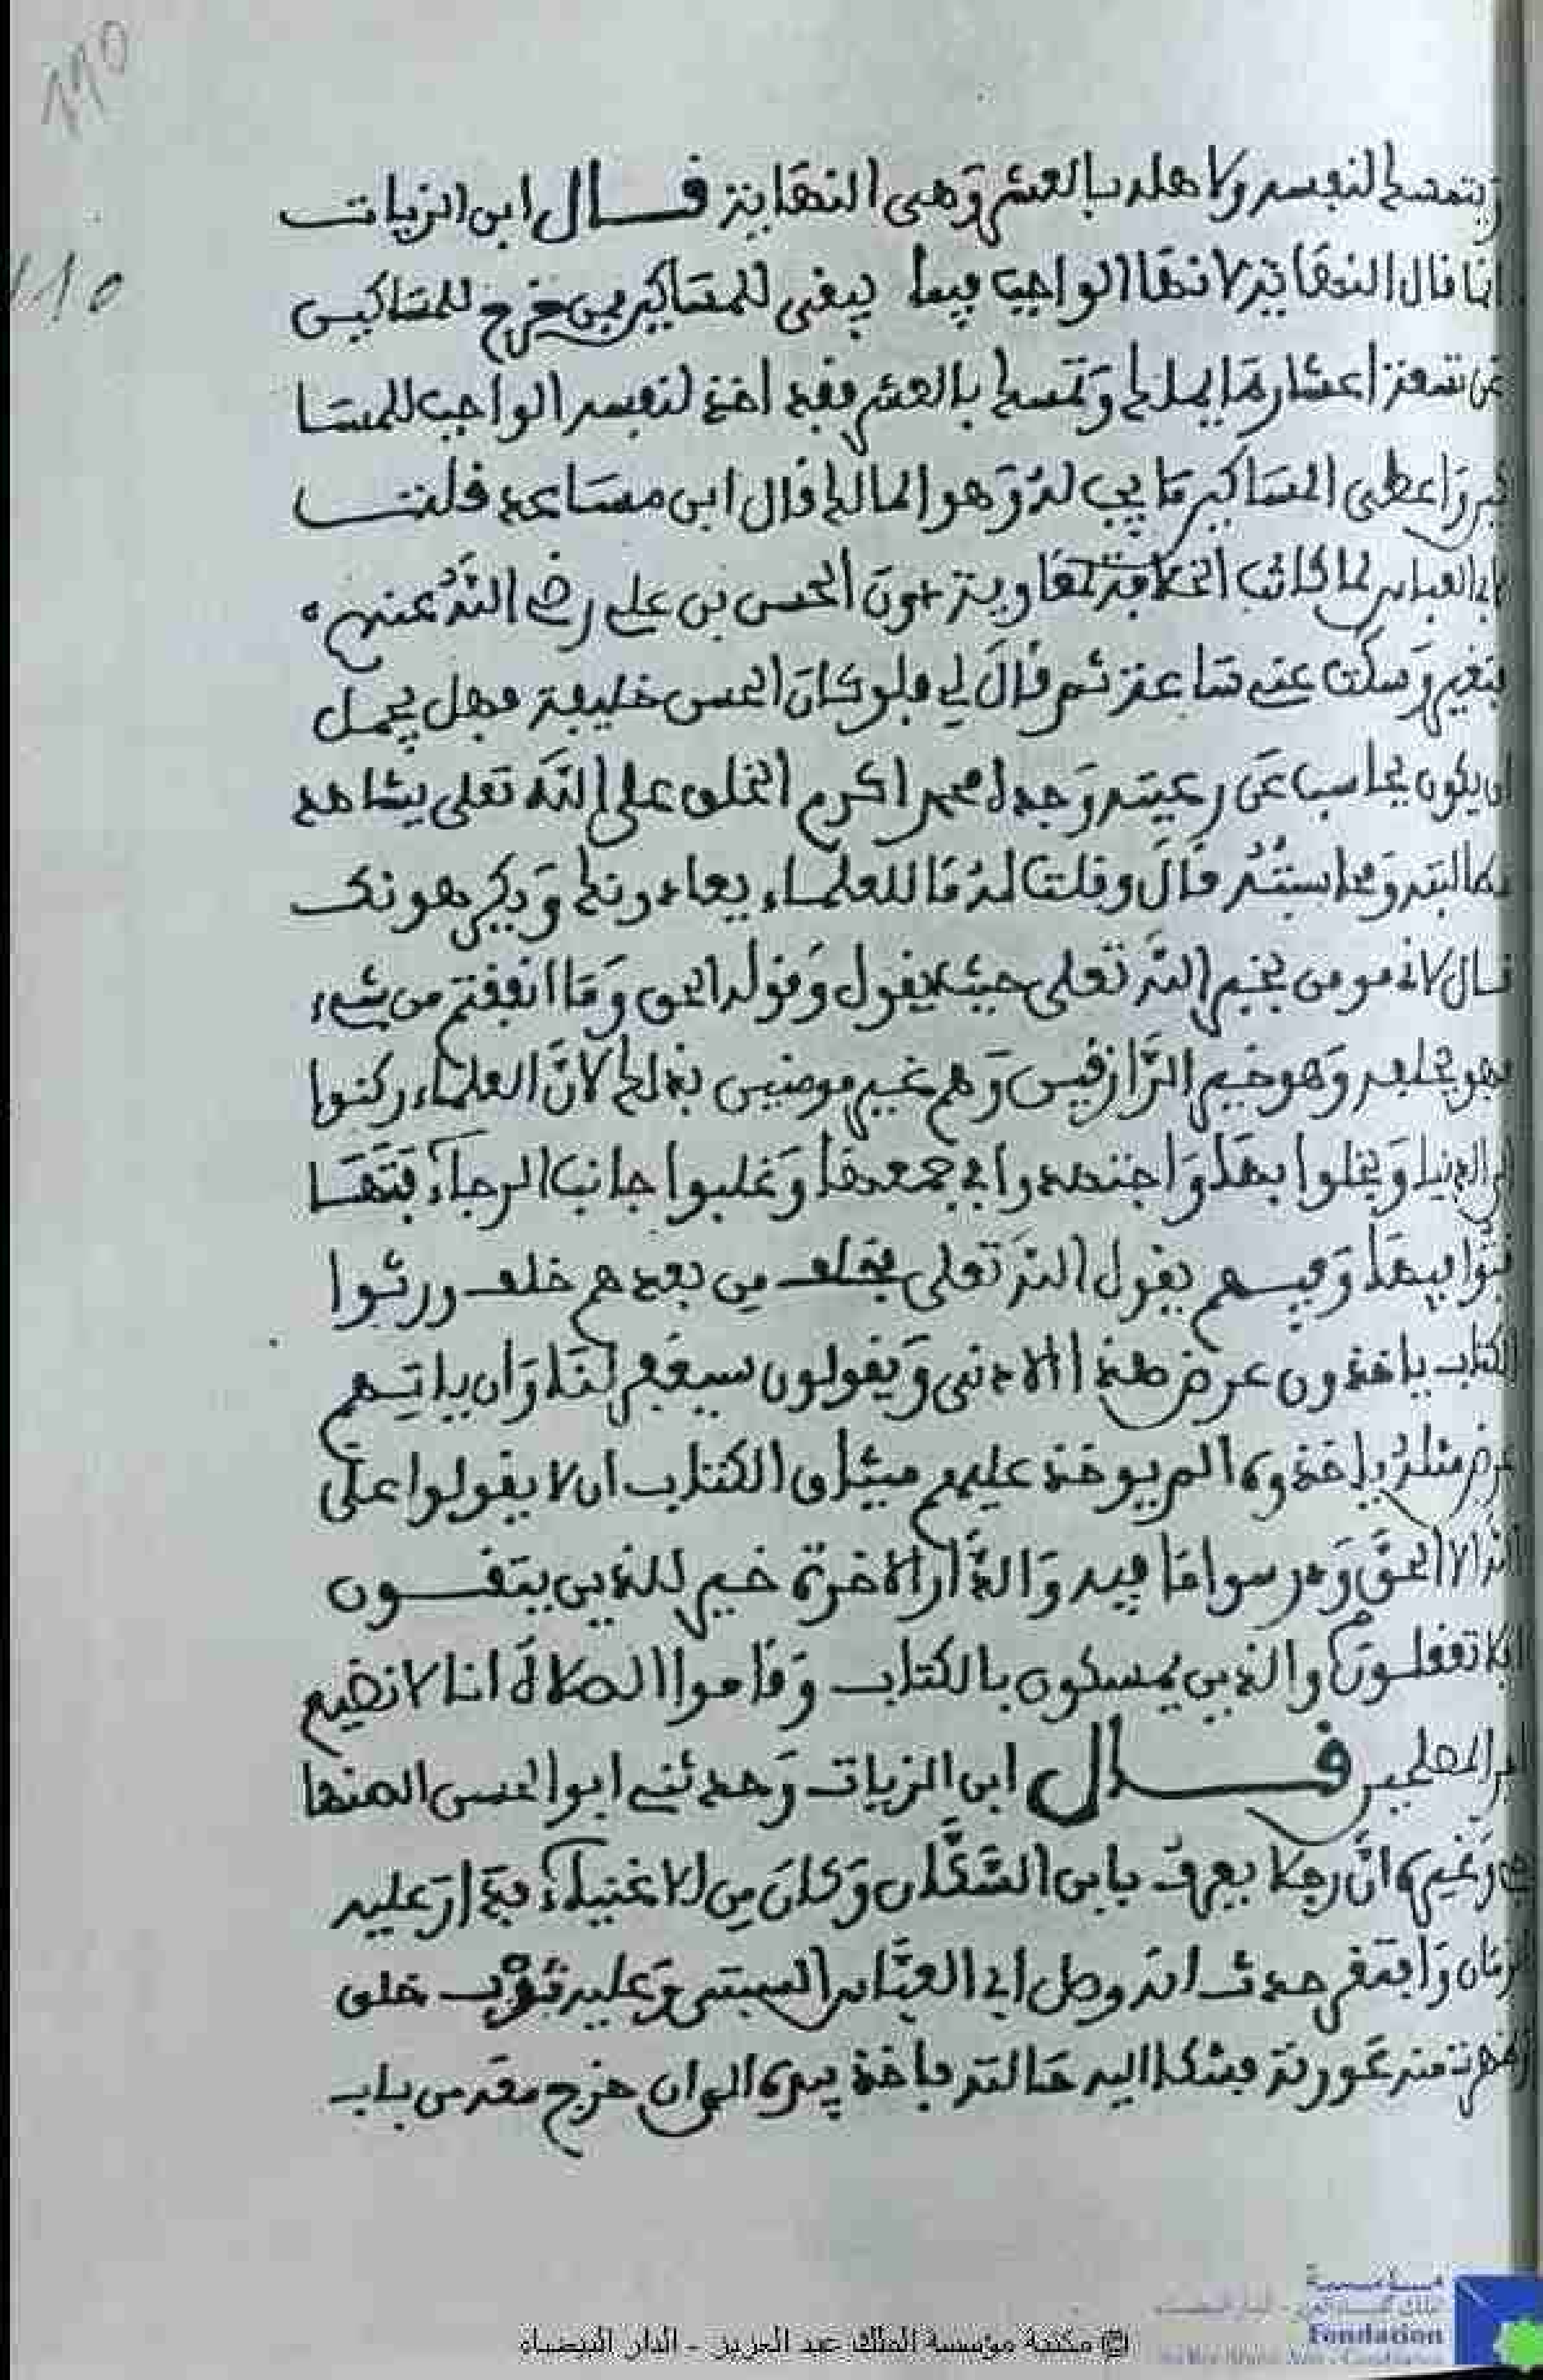 110
110
ويتمسك لنفسه ولاهله بالعشر وهي النهاية قال ابن الزيات
انما قال النهاية لانها الواجب فيما يبقى للمساكين فمن خرج للمساكين
عن تسعة اعشار ما يملك وتمسك بالعشر فقد اخذ لنفسه الواجب للمسا
كين واعطى المساكين ما يجب له وهو المالك قال ابن مساعد قلت
لابي العباس لما كانت الخلافة لمعاوية دون الحسن بن علي رضي الله عنهم
فتغير وسكت عني ساعة ثم قال لي فلو كان الحسن خليفة فهل يجمل
ان يكون يحاسب عن رعيته وجده محمد اكرم الخلق على الله تعلى يشاهد
مطالبته ومحاسبته قال وقلت له ما للعلماء يعادونك ويكرهونك
قال لاني مومن بخبر الله تعلى حيث يقول وقوله الحق وما انفقتم من شيء
فهو يخلفه وهو خير الرازقين وهم غير مومنين بذلك لان العلماء ركنوا
الى الدنيا وبخلوا بها واجتهدوا في جمعها وغلبوا جانب الرجاء فتها
فتوا فيها وفيهم يقول الله تعلى فخلف من بعدهم خلف ورثوا
الكتاب ياخذون عرض هذا الادنى ويقولون سيغفر لنا وان ياتهم
عرض مثله ياخذوه الم يوخذ عليهم ميثاق الكتاب ان لا يقولوا على
الله الا الحق ودرسوا ما فيه والدار الاخرة خير للذين يتقون
افلا تعقلون والذين يمسكون بالكتاب وقاموا الصلاة انا لا نضيع
اجر المصلحين قال ابن الزيات وحدثني ابو الحسن الصنها
جي وغيره ان رجلا يعرف بابن الشكان وكان من الاغنياء فدارت عليه
الزمان وافتقر حدث انه وصل ابي العباس السبتي وعليه ثوب خلق
تظهر منه عورته فشكا اليه حالته فاخذ بيده الى ان خرج معه من باب
© مكتبة مؤسسة الملك عبد العزيز - الدار البيضاء
Fondation